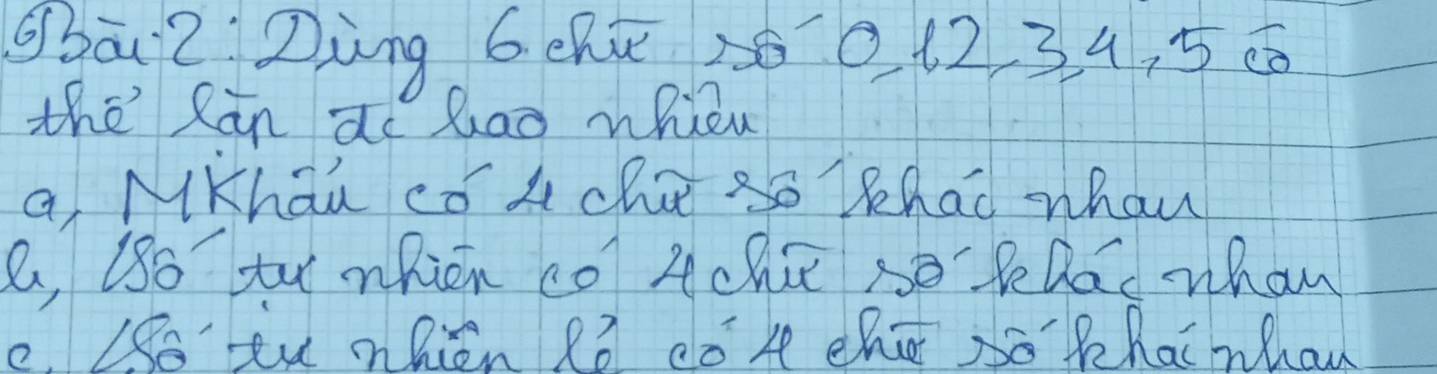 Bài 2: Dùng 6 chữ số 0, 1 2, 3, 4, 5 có
thể lập đc bao nhiêu
a, MKhẩu có 4 chữ số khác nhau
b, Số tự nhiên có 4 chữ số khác nhau
c, Số tự nhiên lẻ có 4 chữ số khác nhau